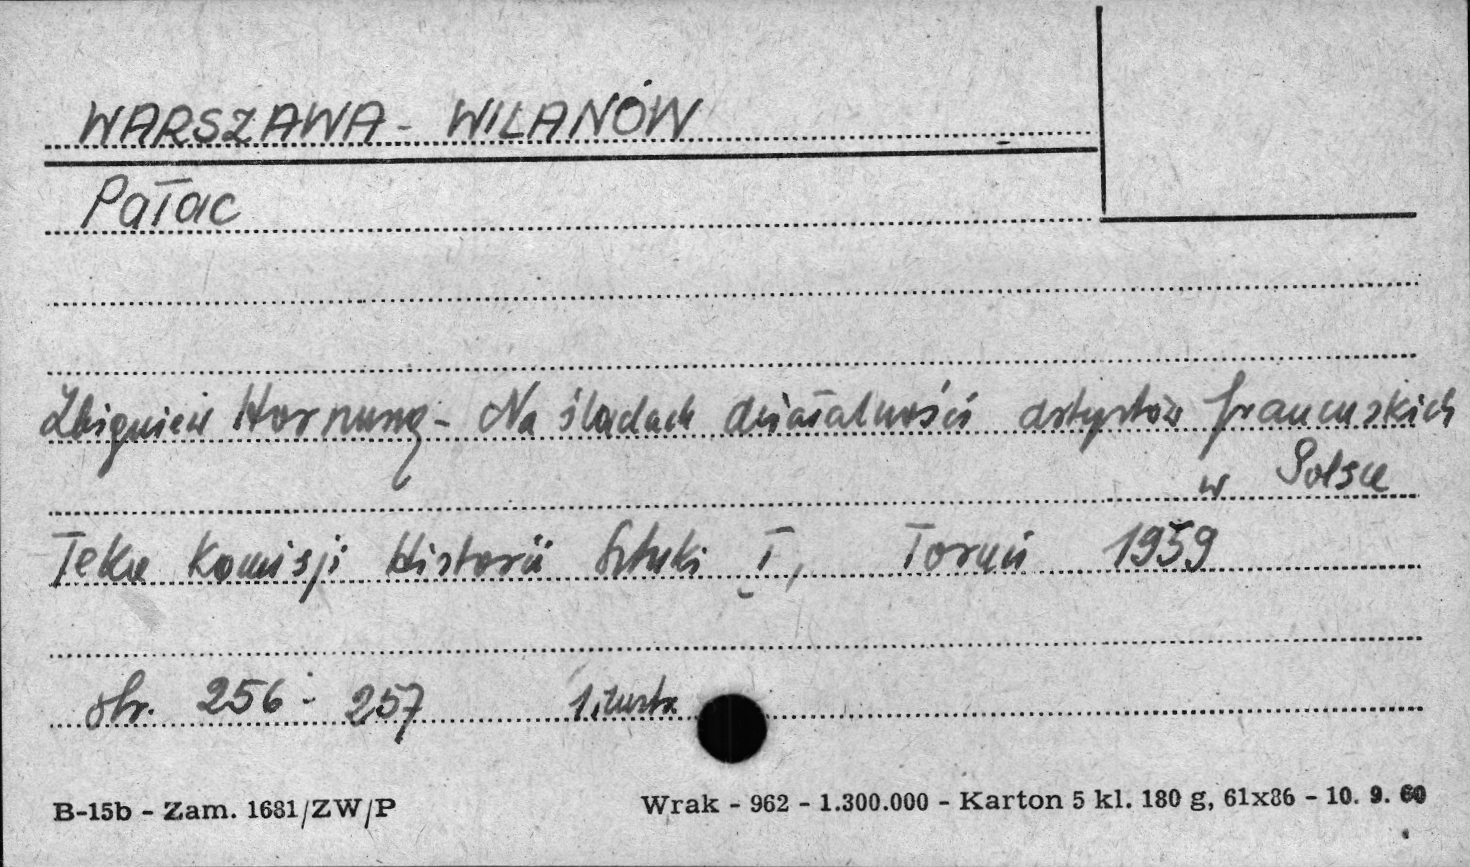 WARSZAWA - WILANÓW
Pałac
Zbigniew Hornung - Na śladach działalności artystów francuskich
w Polsce
Teka Komisji Historii Sztuki I, Toruń 1959
str. 256 - 257
B-15b - Zam. 1681/ZW/P
Wrak - 962 - 1.300.000 - Karton 5 kl. 180 g, 61x86 - 10. 9. 60